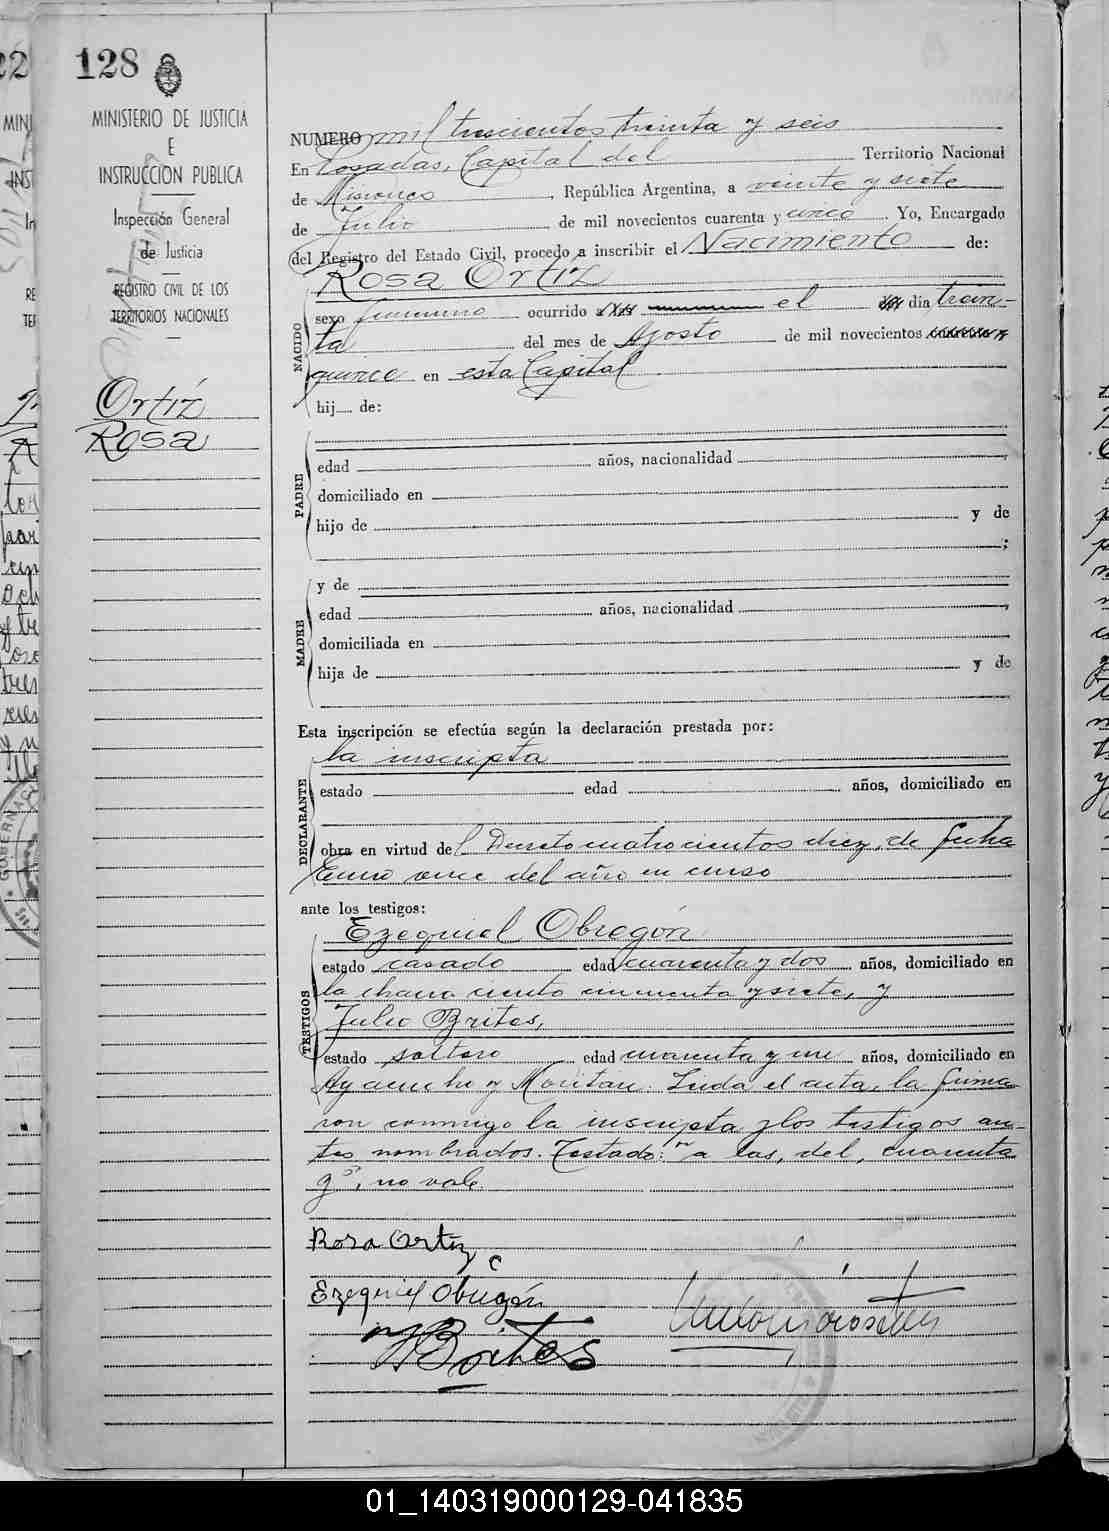 128
MINISTERIO DE JUSTICIA
E
INSTRUCCION PUBLICA
Inspección General
de Justicia
REGISTRO CIVIL DE LOS
TERRITORIOS NACIONALES
Ortíz
Rosa
NUMERO mil trescientos treinta y seis
En Posadas, Capital del Territorio Nacional
de Misiones, República Argentina, a veinte y siete
de Julio de mil novecientos cuarenta y cinco. Yo, Encargado
del Registro del Estado Civil, procedo a inscribir el Nacimiento de:
Rosa Ortíz
NACIDO
sexo femenino ocurrido el día trein-
ta del mes de Agosto de mil novecientos
quince en esta Capital
hij de:
PADRE
edad años, nacionalidad
domiciliado en
hijo de y de
;
MADRE
y de
edad años, nacionalidad ,
domiciliada en
hija de y de
Esta inscripción se efectúa según la declaración prestada por:
la inscripta
DECLARANTE
estado edad años, domiciliado en
obra en virtud del Decreto cuatrocientos diez, de fecha
Enero once del año en curso
ante los testigos:
Ezequiel Obregón
TESTIGOS
estado casado edad cuarenta y dos años, domiciliado en
la chacra ciento cincuenta y siete, y
Julio Brites,
estado soltero edad cuarenta y un años, domiciliado en
Ayacucho y Moritán. Leída el acta, la firma-
ron conmigo la inscripta y los testigos an-
tes nombrados. Testado: "a las, del, cuarenta
y", no vale.
Rosa Ortiz
Ezequiel Obregón
J Brites
01_140319000129-041835